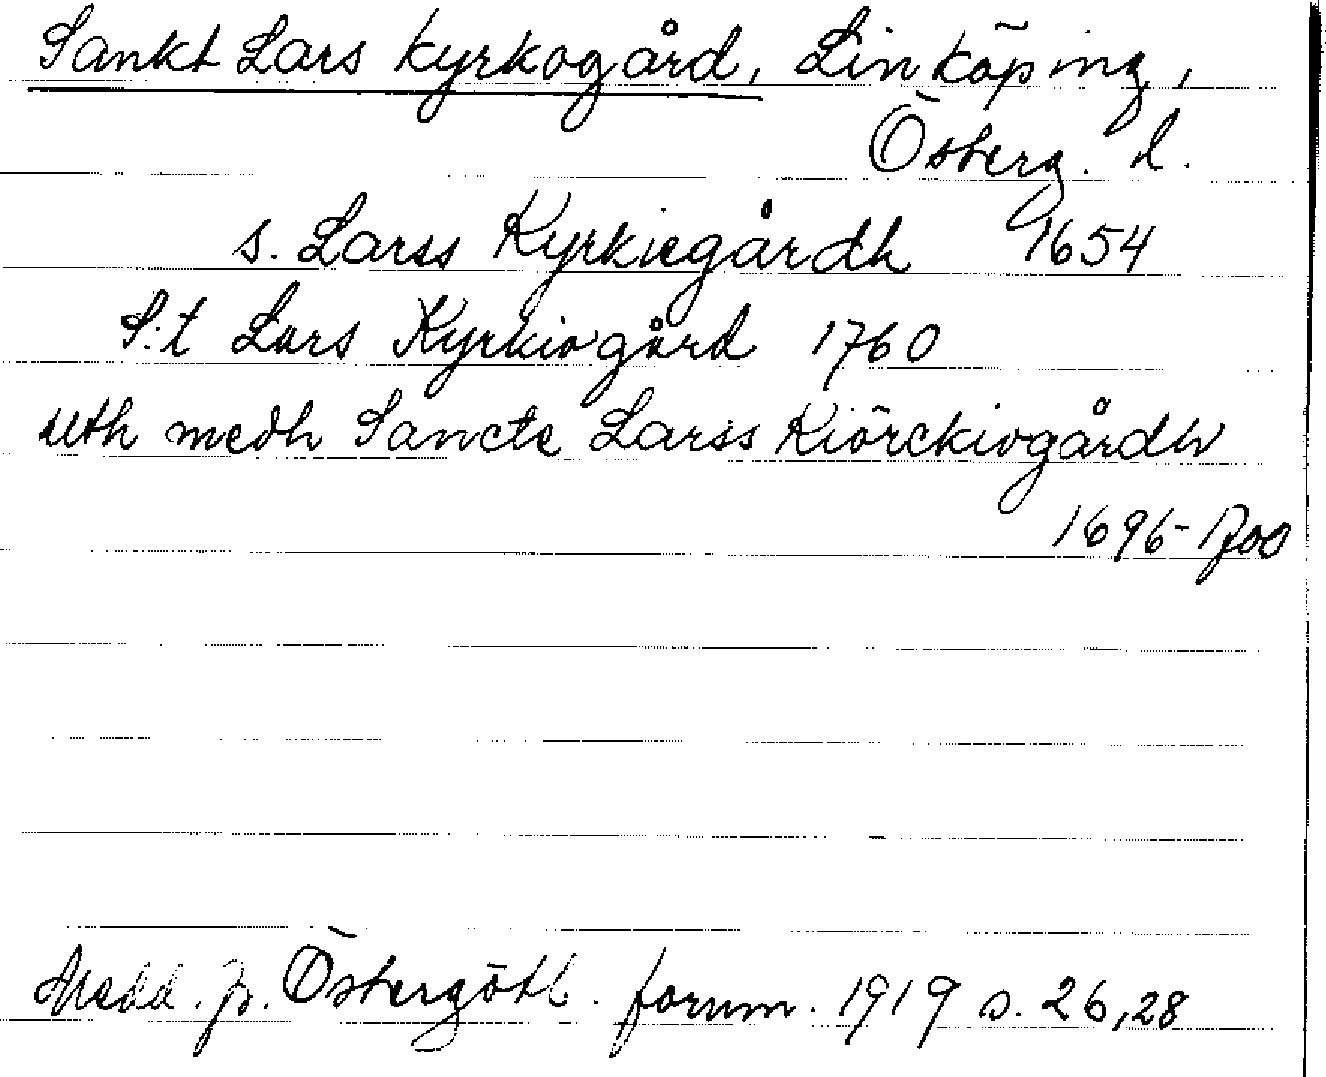 Sankt Lars kyrkogård, Linköping,
Österg. l.
s. Larss Kyrkiegårdh 1654
S:t Lars Kyrkiogård 1760
uth medh Sancte Larss Kiörckiogårdh
1696-1700
Medd. fr. Östergötl. fornm. 1919 s. 26,28